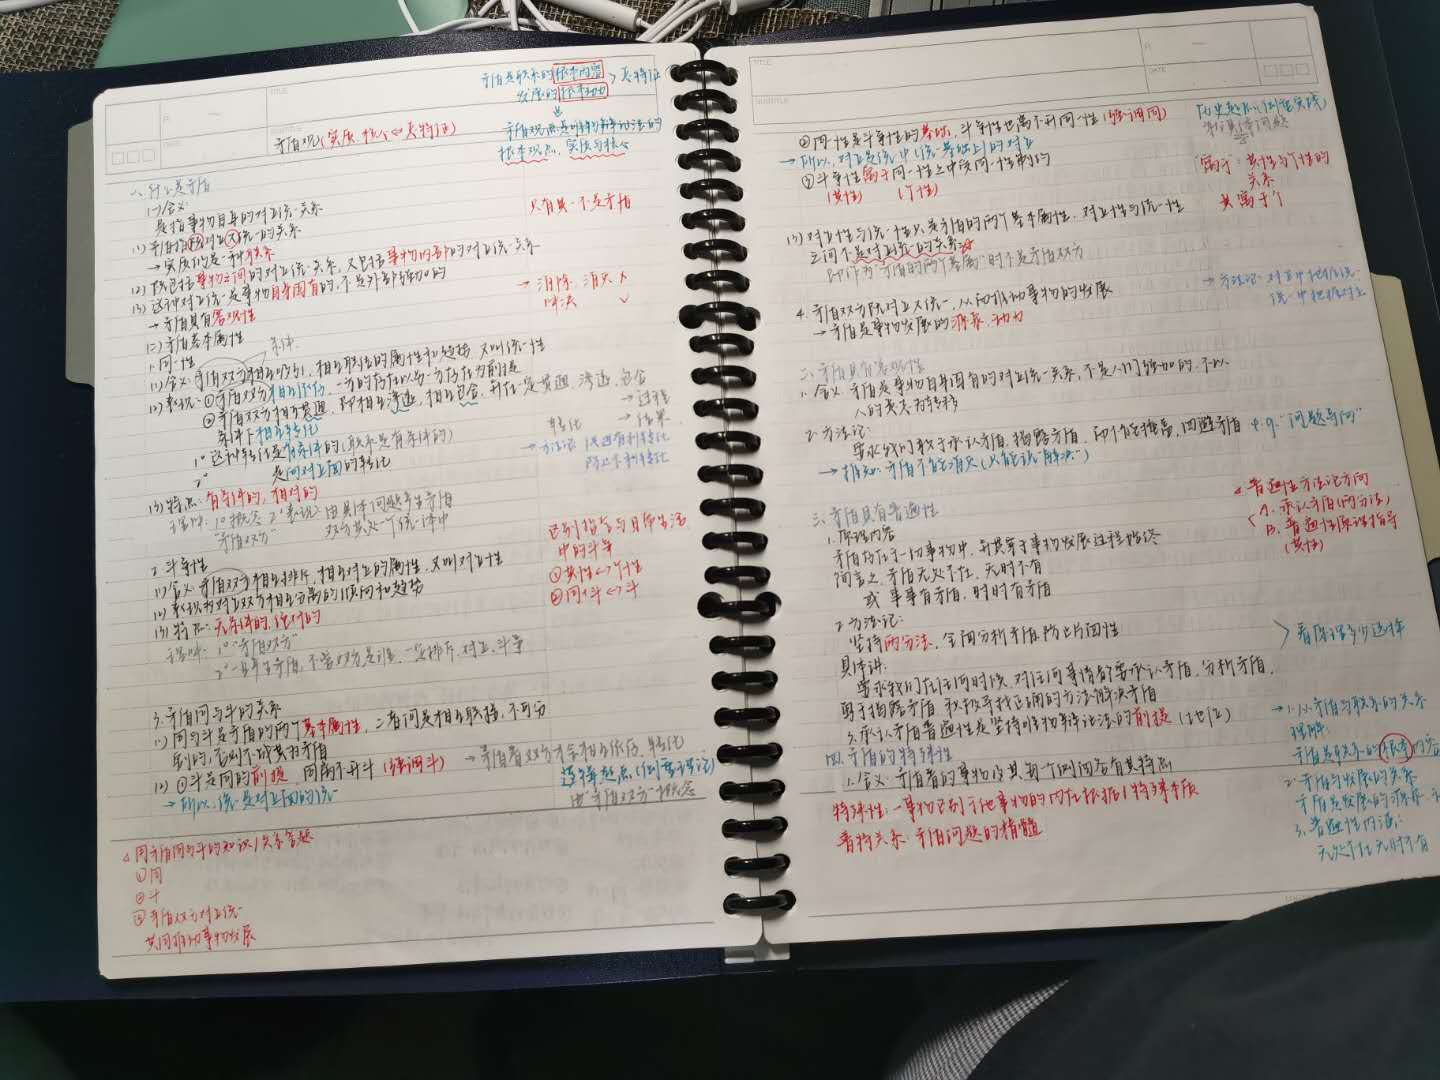 矛盾是联系的根本内容
发展的根本动力 > 总特征
矛盾观(实质、核心 ← 总特征)
矛盾观点是唯物辩证法的
根本观点、实质与核心
一、什么是矛盾
(一)含义:
是指事物自身的对立统一关系
(1)矛盾指既对立又统一的关系
→实质仍是一种联系
(2)既包括事物之间的对立统一关系,又包括事物内部的对立统一关系
(3)这种对立统一是事物自身固有的,不是外部强加的
→矛盾具有客观性
只有其一不是矛盾
→消除、消灭 ×
解决 √
(二)矛盾基本属性
1.同一性
(1)含义:矛盾双方相互吸引、相互联结的属性和趋势,又叫统一性
(2)表现:①矛盾双方相互依存,一方的存在以另一方存在为前提
②矛盾双方相互贯通,即相互渗透,相互包含,并在一定
条件下相互转化
贯通、渗透、包含
→过程
转化 →结果
1°这种转化是有条件的(联系是有条件的)
2° 是向对立面的转化
→方法论:促进有利转化
防止不利转化
(3)特点:有条件的,相对的
理解:1°概念 2°表现
"矛盾双方"
由具体问题产生矛盾
双方共处一个统一体中
2.斗争性
(1)含义:矛盾双方相互排斥、相互对立的属性,又叫对立性
(2)表现为对立双方相互分离的倾向和趋势
(3)特点:无条件的,绝对的
理解:1°"矛盾双方"
2°一旦产生矛盾,不管双方是谁,一定排斥、对立、斗争
区别哲学与日常生活
中的斗争
①共性↔个性
②同+斗↔斗
3.矛盾同与斗的关系
(1)同与斗是矛盾的两个基本属性,二者间是相互联接,不可分
割的,否则不成其为矛盾
(2)①斗是同的前提,同离不开斗(强调斗)
→所以,统一是对立面的统一
→矛盾着双方才会相互依存、转化
由"矛盾双方"概念
△用矛盾同与斗的知识/关系答题
①同
②斗
③矛盾双方对立统一
共同推动事物发展
②同一性是斗争性的基础,斗争性也离不开同一性(强调同)
→所以,对立是统一中(统一基础上)的对立
③斗争性寓于同一性之中受同一性制约
(共性) (个性)
"寓于":共性与个性的
关系
共寓于个
(3)对立性与统一性只是矛盾的两个基本属性,对立性与统一性
之间不是对立统一的关系
即作为"矛盾的两个基属"时不是矛盾双方
4.矛盾双方既对立又统一,从而推动事物的发展
→矛盾是事物发展的源泉、动力
→方法论:对立中把握统一
统一中把握对立
二、矛盾具有客观性
1.含义:矛盾是事物自身固有的对立统一关系,不是人们强加的,不以
人的意志为转移
2.方法论:
要求我们敢于承认矛盾,揭露矛盾,而不能掩盖,回避矛盾 e.g."问题导向"
→推知:矛盾不能消灭(只能说"解决")
三、矛盾具有普遍性
1.原理内容
矛盾存在于一切事物中,并贯穿于事物发展过程始终
简言之,矛盾无处不在,无时不有
或 事事有矛盾,时时有矛盾
2.方法论:
坚持两分法,全面分析矛盾,防止片面性
具体讲:
要求我们在任何时候,对任何事情都要承认矛盾,分析矛盾,
勇于揭露矛盾,积极寻找正确的方法解决矛盾
3.承认矛盾普遍性是坚持唯物辩证法的前提(地位)
△普遍性方法论方向
A.承认矛盾(两分法)
B.普遍性原理指导
(共性)
四、矛盾的特殊性
1.含义:矛盾着的事物及其每一个侧面各有其特点
特殊性:一事物区别于他事物的内在根据/特殊本质
普特关系:矛盾问题的精髓
→1.从矛盾与联系的关系
理解:
矛盾是联系的根本内容
2.矛盾与发展的关系
3.普遍性内涵:
无处不在无时不有